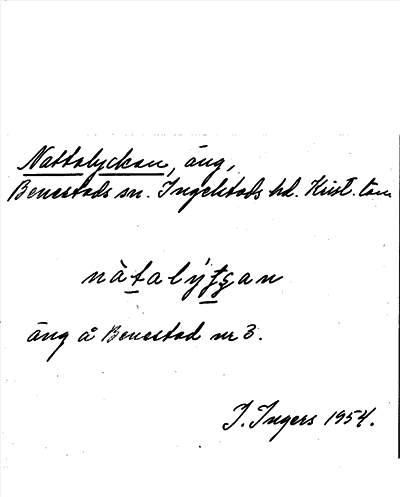 Nattalyckan, äng,
Benestads sn. Ingelstads hd. Krist. län
nàtalýt̠s̠an
äng å Benestad nr 3.
I. Ingers 1954.